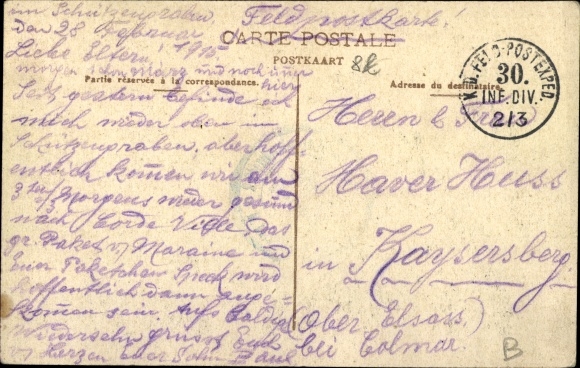 im Schützengraben,
Feldpostkarte!
den 28 Februar
1915
CARTE POSTALE
POSTKAART
8k
Liebe Eltern!
morgen schon März und noch immer
hier
Partie réservée à la correspondance.
Adresse du destinataire.
K.D. FELD-POSTEXPED
30.
INF. DIV.
2/3
Seit gestern befinde ich
mich wieder oben im
Schützengraben, aber hoff-
entlich kommen wir am
3ten Morgens wieder gesund
nach Corde Ville. Das
gr. Paket v/ Maraine und
Euer Paketchen Speck wird
hoffentlich dann ange-
kommen sein. Aufs baldige
Wiedersehn grüsst Euch
v/ Herzen Euer Sohn Paul
Herrn
Xaver Huss
in Kaysersberg
(Ober Elsass.)
bei Colmar.
B